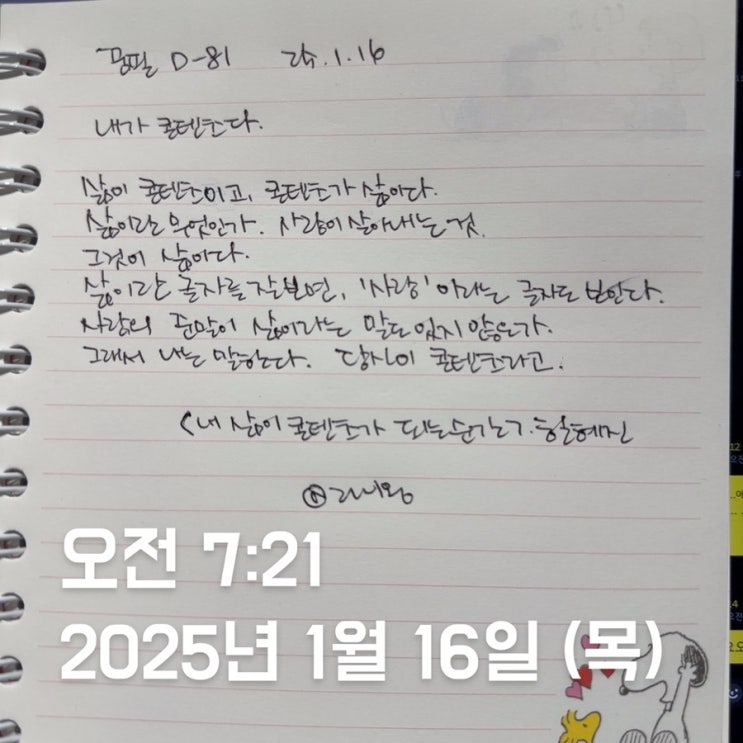 꿈필 D-81 25.1.16
내가 콘텐츠다.
삶이 콘텐츠이고, 콘텐츠가 삶이다.
삶이란 무엇인가. 사람이 살아내는 것.
그것이 삶이다.
삶이란 글자를 잘보면, '사람'이라는 글자도 보인다.
사람의 준말이 삶이라는 말도 있지 않은가.
그래서 나는 말한다. 당신이 콘텐츠라고.
<내 삶이 콘텐츠가 되는순간>
오전 7:21
2025년 1월 16일 (목)